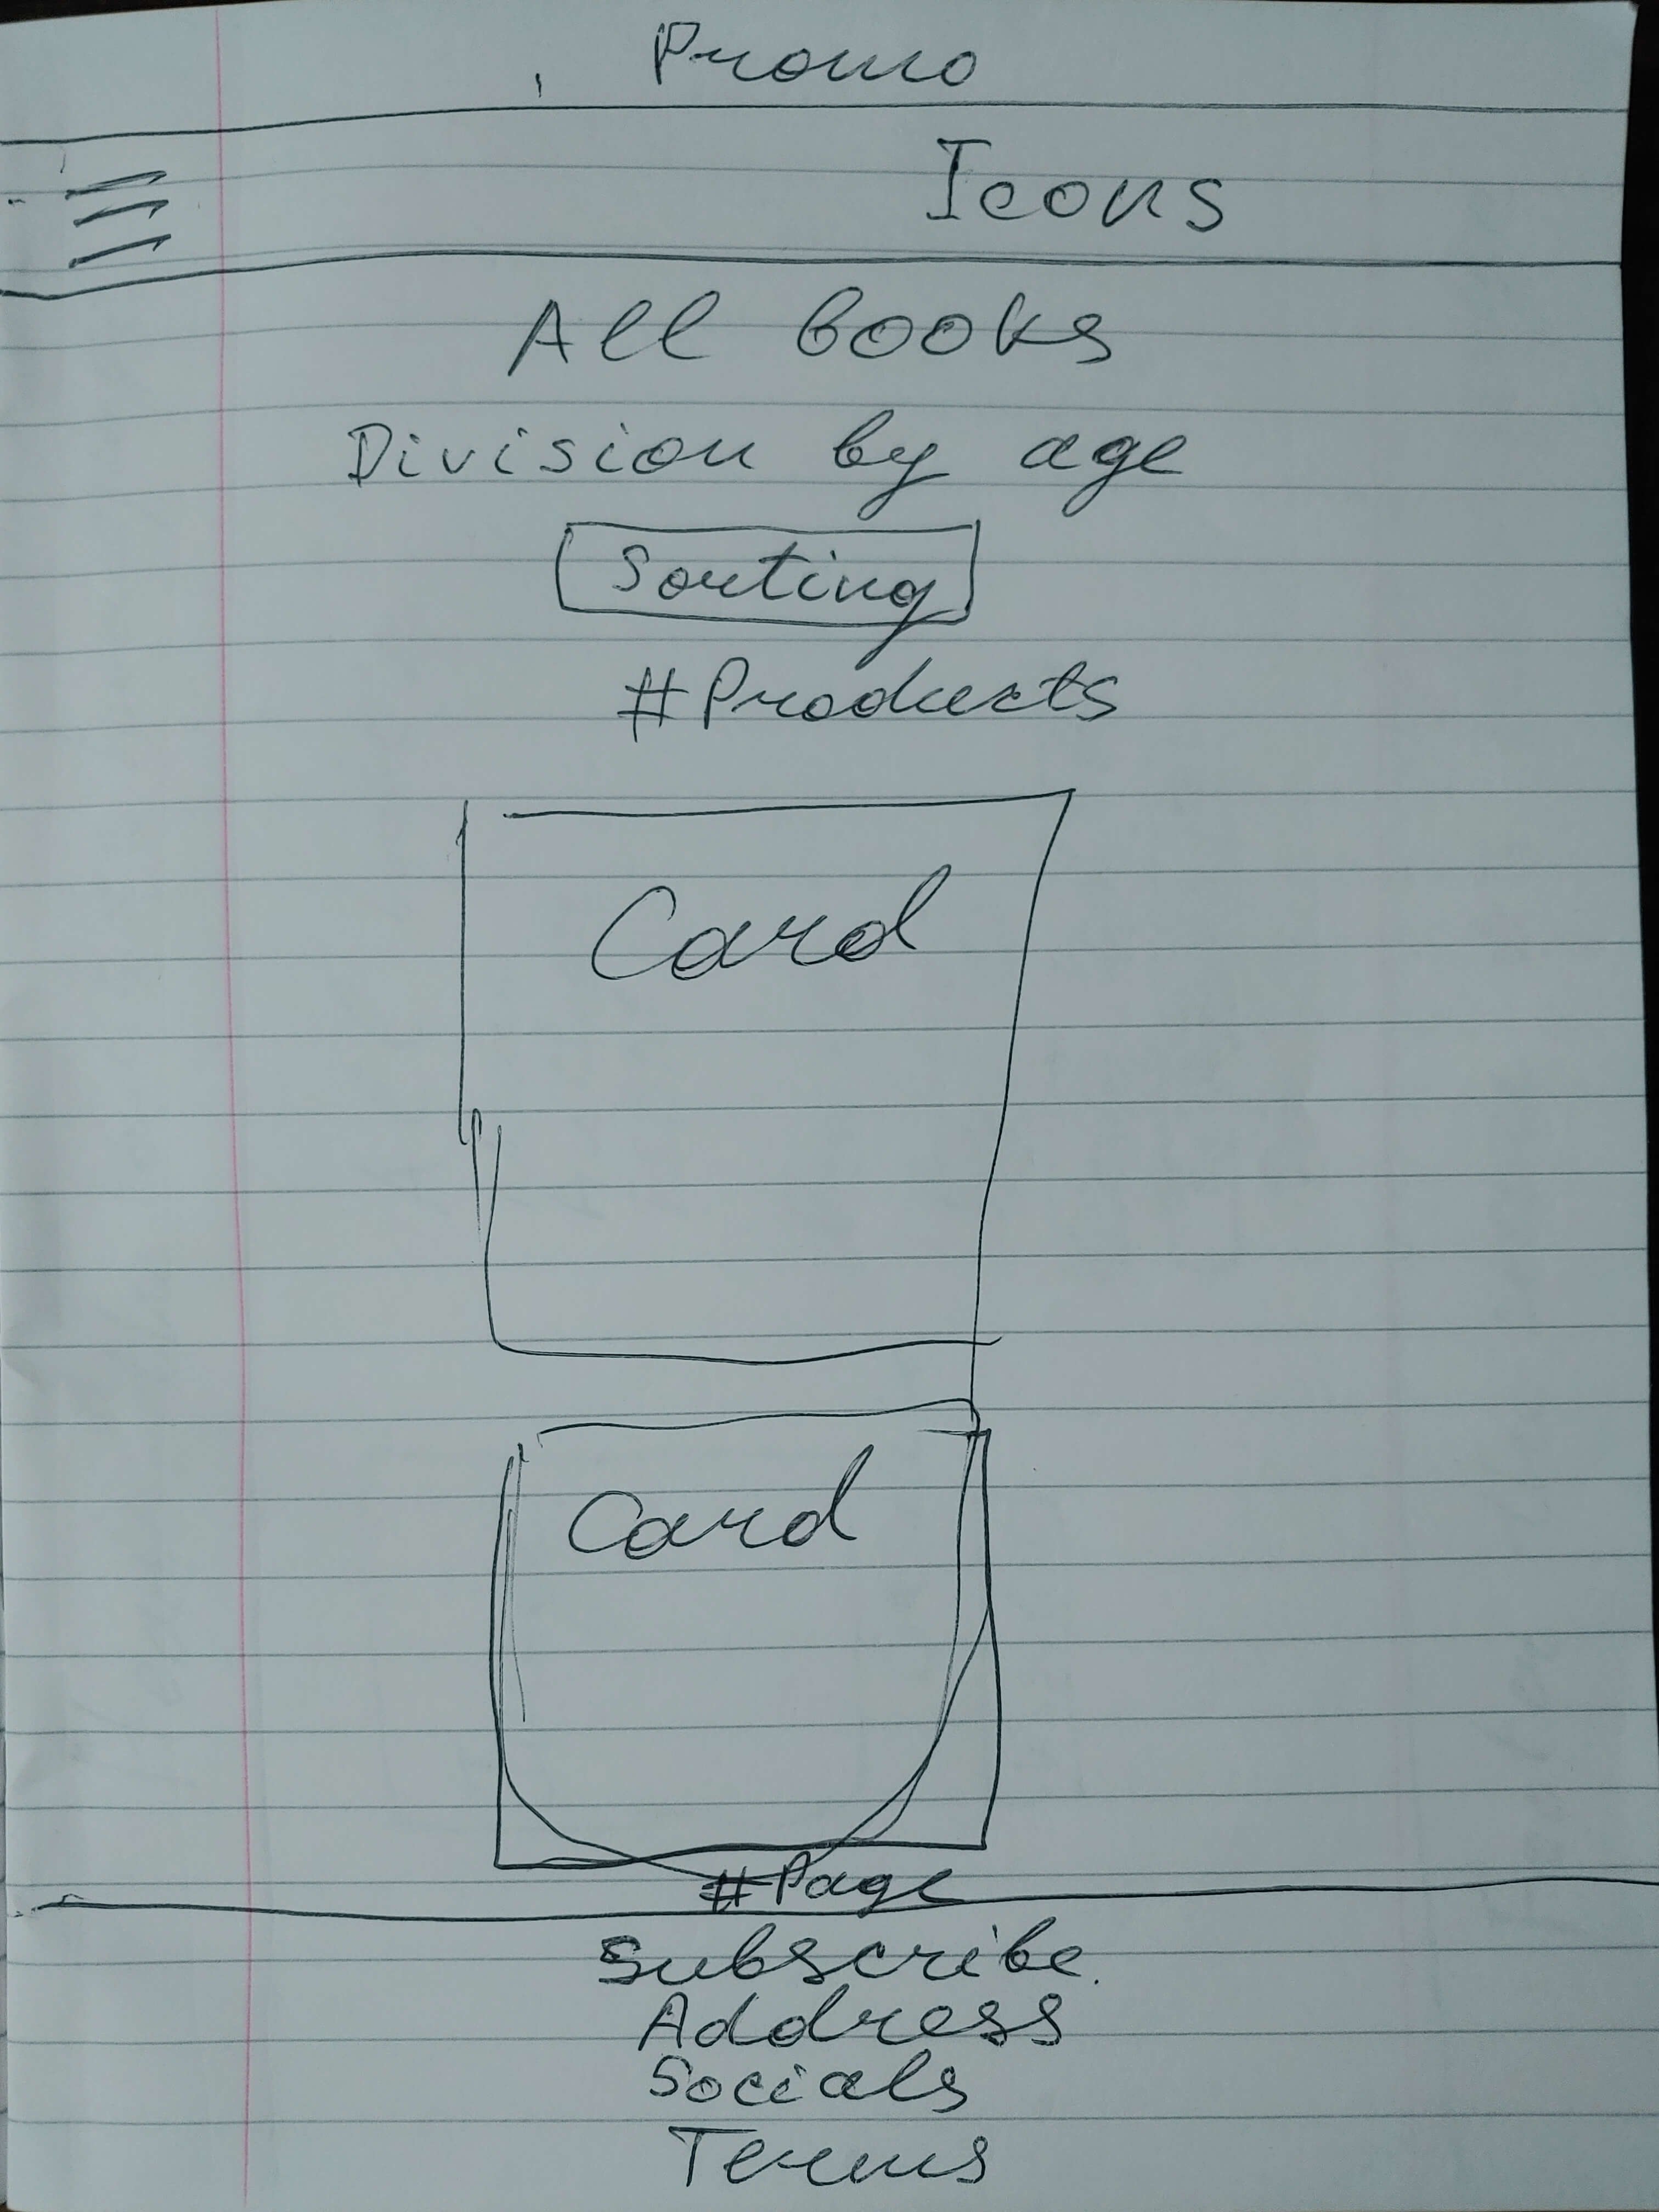 Promo
Icons
All books
Division by age
Sorting
#Products
Card
Card
#Page
Subscribe
Address
Socials
Terms